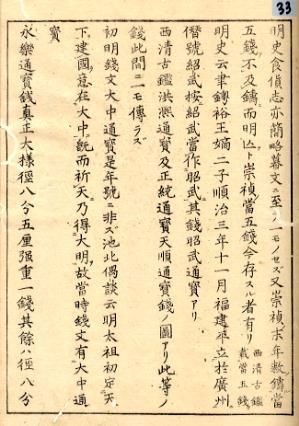 33
明史食貨志亦簡略暮文ニ至リ一モノセズ又崇禎末年數鑄當
五錢不及鑄而明亡ト崇禎當五錢今存スル者有リ西清古鑑載當五錢
明史云聿𨮁裕王嫡二子順治三年十一月福建平立於廣州
僭號紹武按紹武當作昭武其錢昭武通寳アリ
西清古鑑洪熙通寳及正統通寳天順通寳錢ノ圖アリ此等ノ
錢此間ニモ傳ラズ
初明錢文大中通寳是年號ニ非ズ池北偶談云明太祖初定天
下建國意在大中旣而祈天乃得大明故當時錢文有大中通
寳
永樂通寳錢眞正大樣徑八分五厘强重一錢其餘ハ徑八分